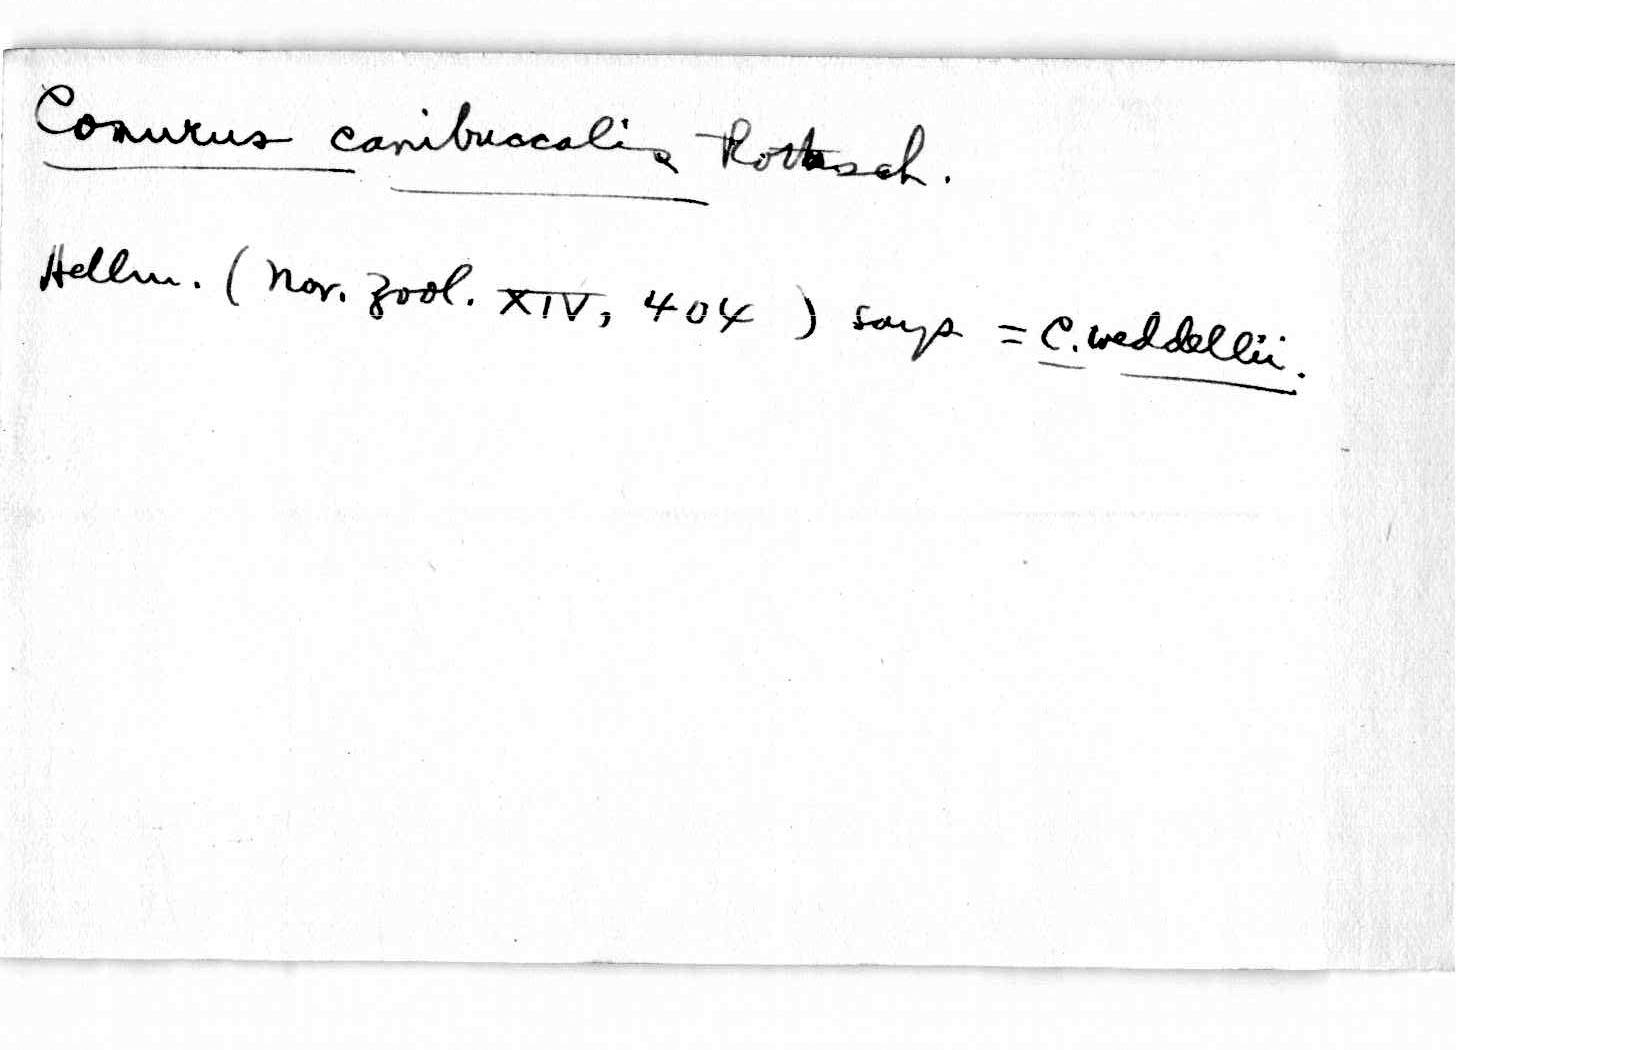 Conurus canibuccalis Rothsch.
Hellm. (Nov. Zool. XIV, 404) says = C. weddellii.